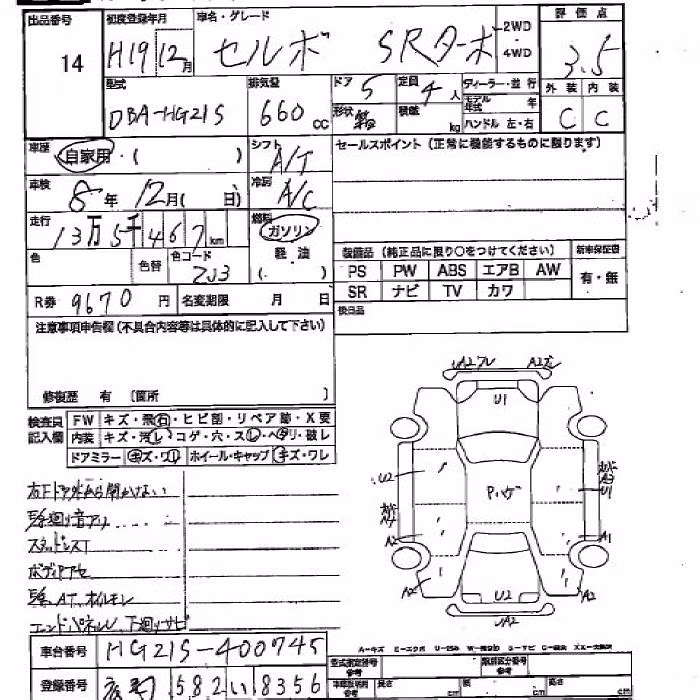 出品番号
14
初度登録年月
H19 12月
車名・グレード
セルボ SRターボ
2WD
4WD
評価点
3.5
型式
DBA-HG21S
排気量
660 cc
ドア 5
形状
定員 4人
積載 kg
ディーラー・並行
モデル年式 年
ハンドル 左・右
外装 内装
C C
車歴
自家用・( )
シフト
A/T
セールスポイント(正常に機能するものに限ります)
車検
8年 12月( 日)
冷房
A/C
走行
13万5千467km
燃料
ガソリン
軽油
( )
色
色替
色コード
ZJ3
装備品(純正品に限り○をつけてください)
新車保証書
PS PW ABS エアB AW
有・無
SR ナビ TV カワ
R券 9670円
名変期限 月 日
後日品
注意事項申告欄(不具合内容等は具体的に記入して下さい)
修復歴 有 〔箇所 〕
検査員記入欄
FW キズ・飛石・ヒビ割・リペア跡・X要
内装 キズ・汚レ・コゲ・穴・スレ・ヘタリ・破レ
ドアミラー キズ・ワレ ホイール・キャップ キズ・ワレ
UA2 A2
U1
U2
A2
A1
A2
A2
U2
UA2
ボディアセ
エンドパネル、下廻りサビ
車台番号
HG21S-400745
登録番号
582 い 8356
型式指定番号
類別区分番号
参考
長さ cm
幅 cm
高さ cm